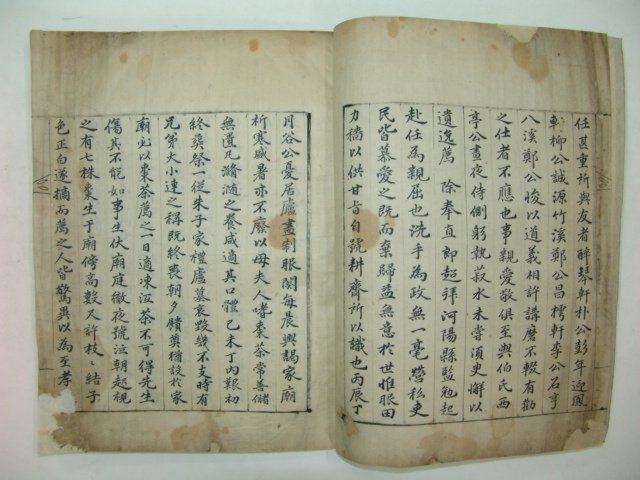 任甚重所與友者醉琴軒朴公彭年迎鳳
軒柳公誠源竹溪鄭公昌樗軒李公石亨
八溪鄭公悛以道義相許講磨不輟有勸
之仕者不應也事親愛敬俱至與伯氏西
亭公晝夜侍側躬執菽水未嘗須臾懈以
遺逸薦 除奉直郎超拜河陽縣監勉起
赴任為親屈也洗手為政無一毫營私吏
民皆慕愛之既而棄歸益無意於世惟服田
力穡以供甘旨自號耕齋所以識也丙辰丁
月谷公憂居廬盡制服闋每晨興謁家廟
祈寒盛暑亦不廢以母夫人嗜棗茶常善儲
無匱凡瀡瀡之養咸適其口體己未丁內艱初
終葬祭一從朱子家禮廬墓哀毀幾不支時有
兄弟大小連之稱既終喪朝夕饋奠猶設於家
廟必以棗茶薦之一日適凍沍茶不可得先生
傷其不能如事生伏廟庭徹夜號泣朝起視
之有七株棗生于廟傍高數尺許枝〻結子
色正白遂摘而薦之人皆驚異以為至孝